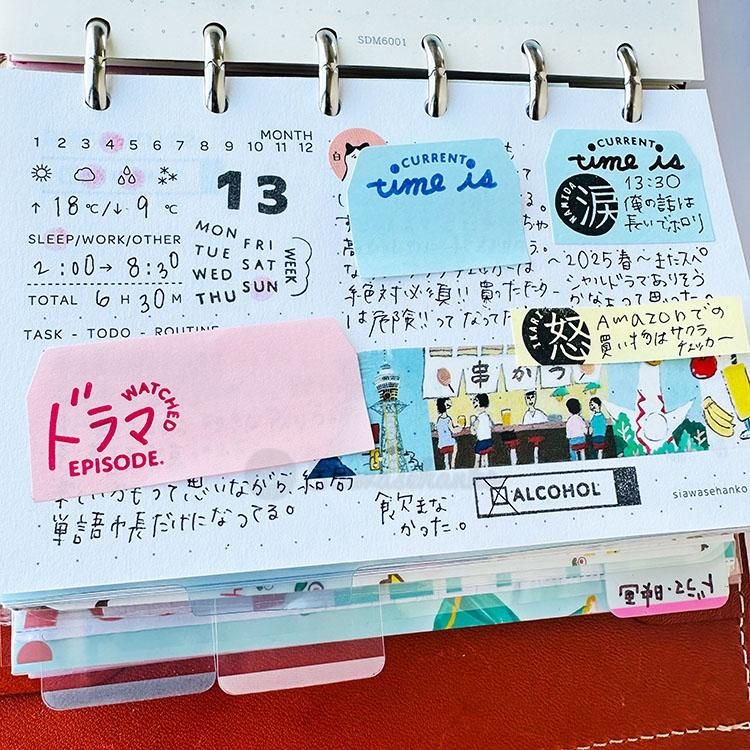 SDM6001
MONTH
1 2 3 4 5 6 7 8 9 10 11 12
↑ 18℃/↓ 9℃
13
SLEEP/WORK/OTHER
2:00→8:30
TOTAL 6 H 30 M
MON
TUE
WED
THU
FRI
SAT
SUN
WEEK
TASK - TODO - ROUTINE
ドラマ
WATCHED
EPISODE.
って思いながら、結局
単語帳だけになってる。
白
CURRENT
time is
絶対必須!! 買ったたター
は危険!! ってなってた
CURRENT
time is
NAMIDA
涙
13:30
俺の話は
長いでホロリ
～2025春～またスペ
シャルドラマでありそう
かなぁって思いった。
IKARI
怒
Amazonでの
買い物はサクラ
チェッカー
串かつ
飲まな
かった。
ALCOHOL
siawasehanko
ドラマ・映画